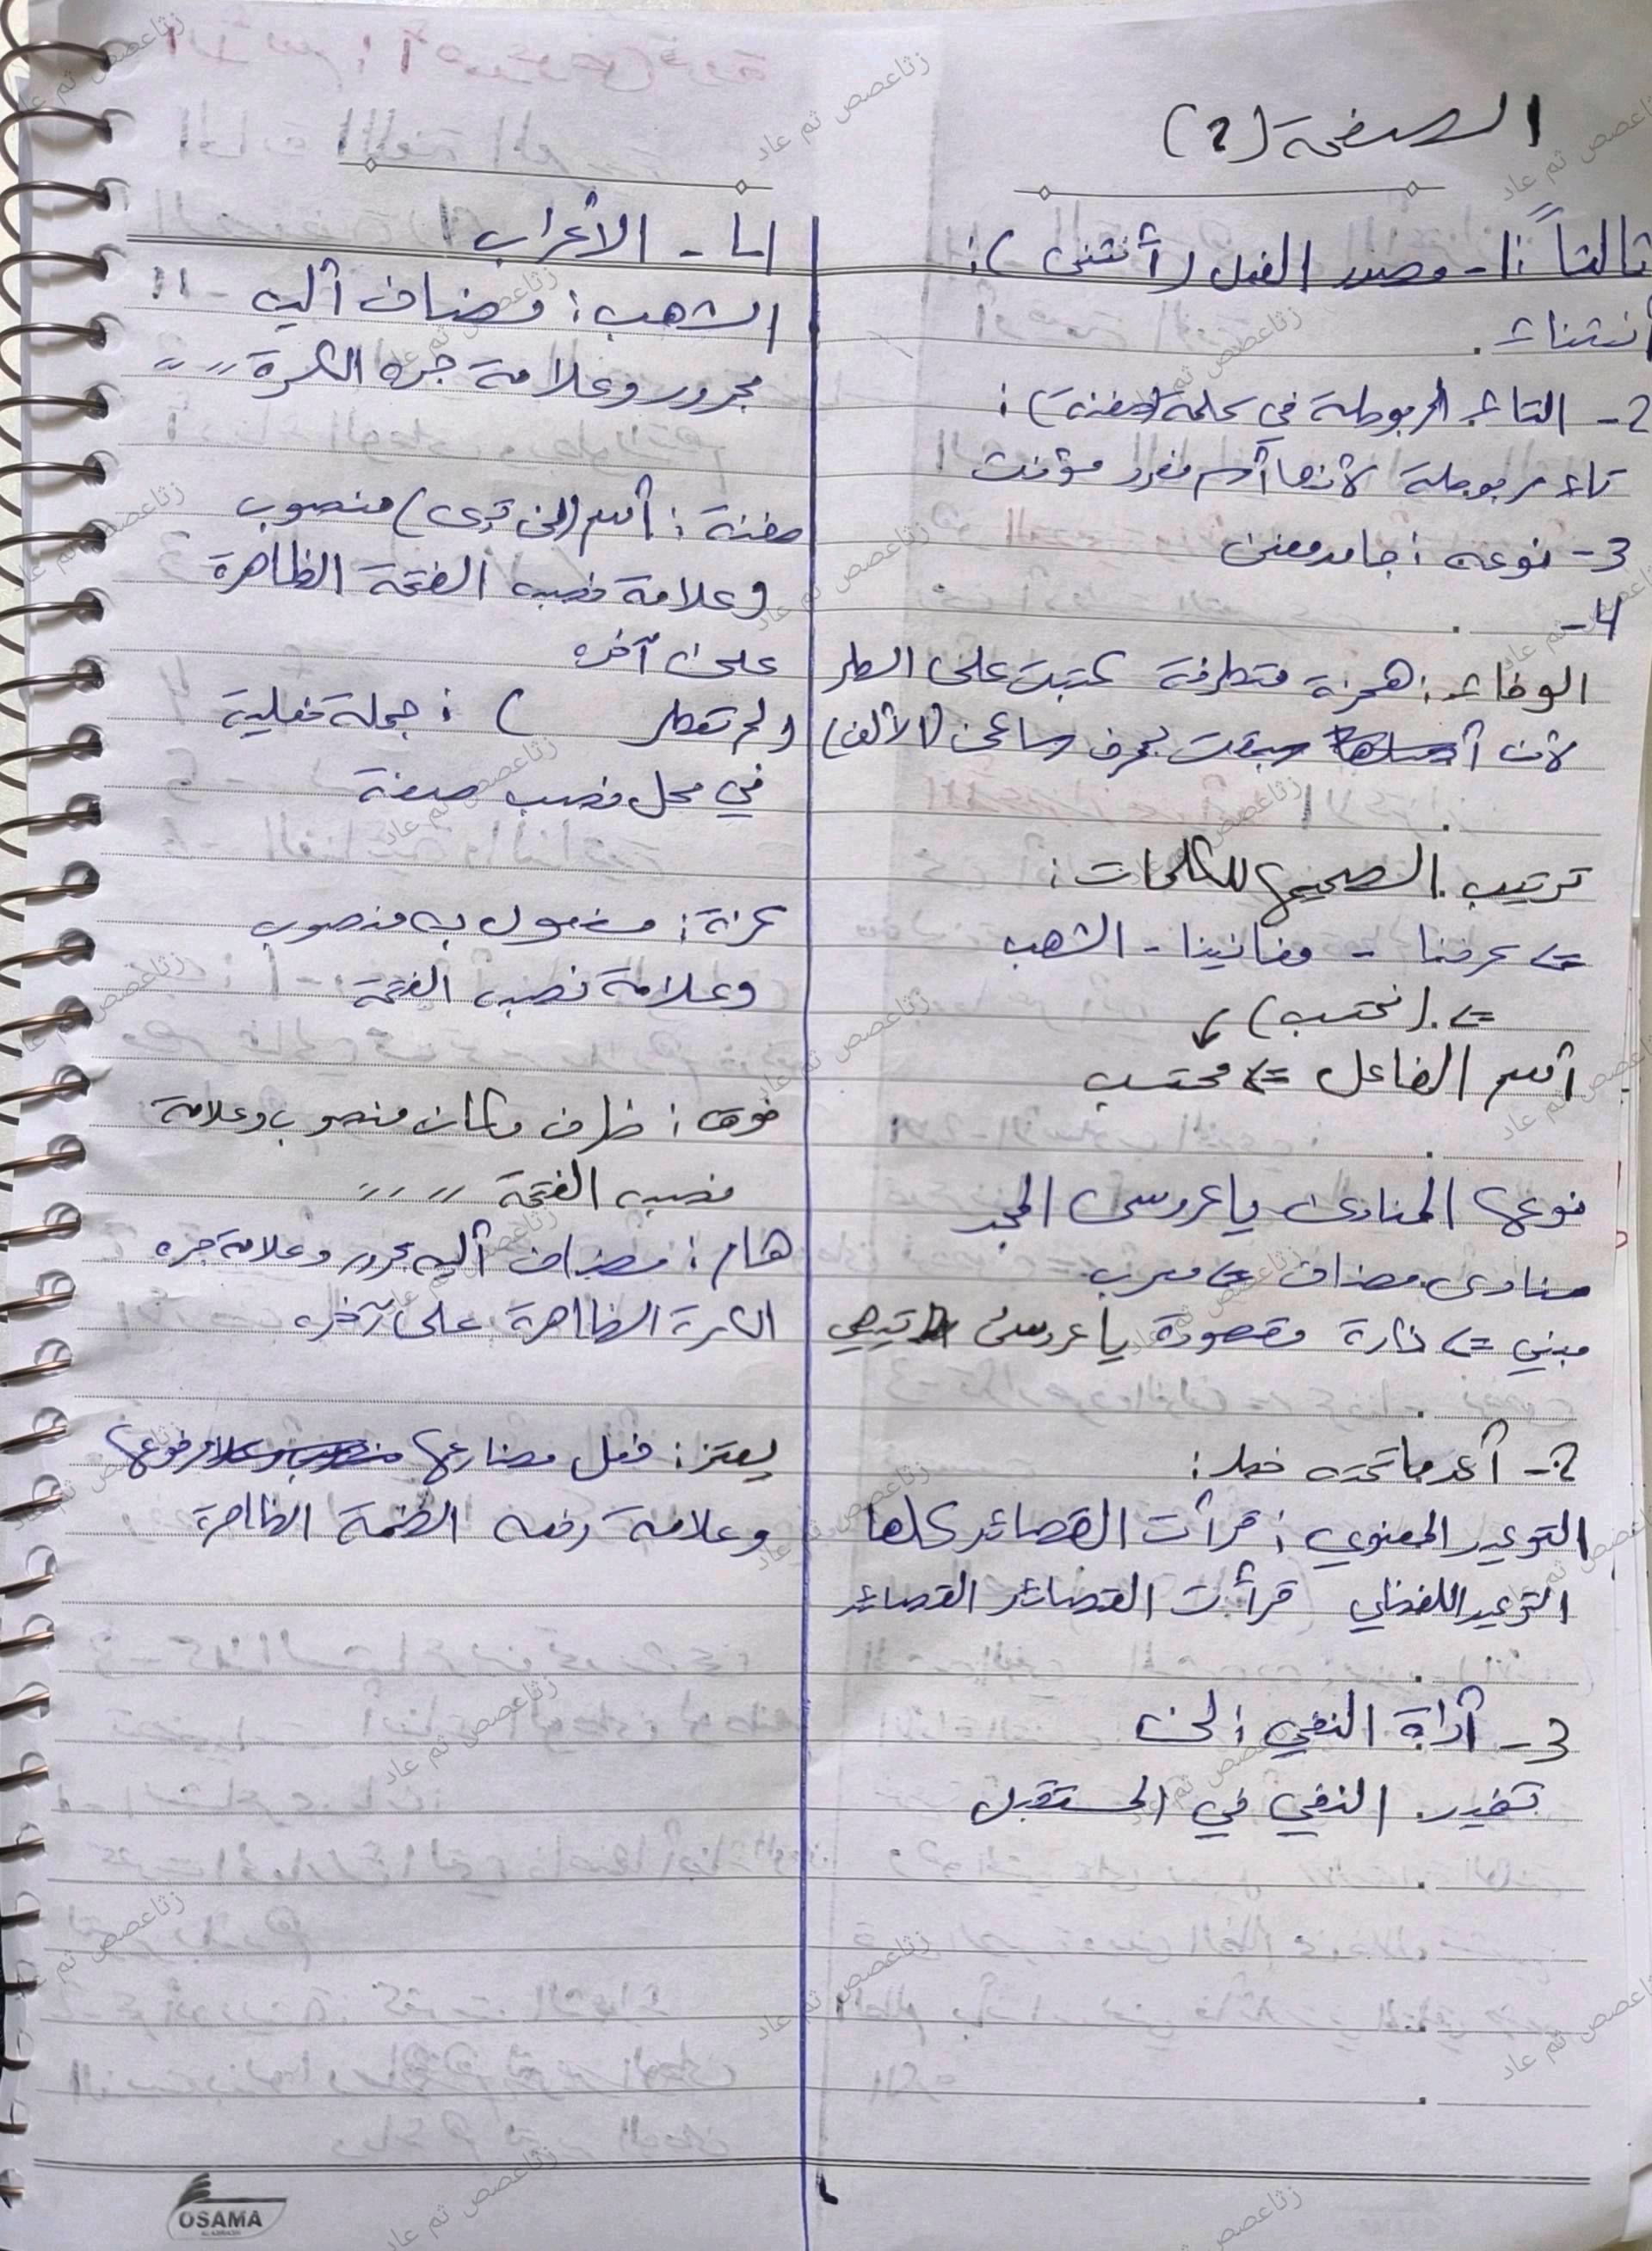 الصفحة (2)
ثالثاً: 1- مصدر الفعل (أنتشى):
انتشاء.
2- التاء المربوطة في كلمة (حفنة):
تاء مربوطة لأنها أسم مفرد مؤنث
3- نوعه: جامد معنى
4-
الوفاء: همزة متطرفة كتبت على السطر
لأن سبقت بحرف ساكن (الألف)
ترتيب الصحيح للكلمات:
<= عرفنا - مغانينا - الشهب
<= (نحتسب)
أسم الفاعل <= محتسب
نوع المنادى يا عروس المجد
منادى مضاف <= معرب
مبني <= نكرة مقصودة يا عروسُ تيهي
2- أعد ما تحته خط:
التوكيد المعنوي: قرأت القصائد كلها
التوكيد اللفظي قرأت القصائد القصائد
3- أداة النفي: لن
تفيد النفي في المستقبل
4- الأعراب
الشهب: مضاف أليه
مجرور وعلامة جره الكسرة " "
حفنة: أسم (لن ترى) منصوب
وعلامة نصبه الفتحة الظاهرة
على آخره
(لم تعطر ): جملة فعلية
في محل نصب صفة
عزة: مفعول به منصوب
وعلامة نصبه الفتحة
فوق: ظرف مكان منصوب وعلامة
نصبه الفتحة " "
هام: مضاف أليه مجرور وعلامة جره
الكسرة الظاهرة على آخره
يعتز: فعل مضارع مرفوع
وعلامة رفعه الضمة الظاهرة
OSAMA
زثاعصص ثم عاد